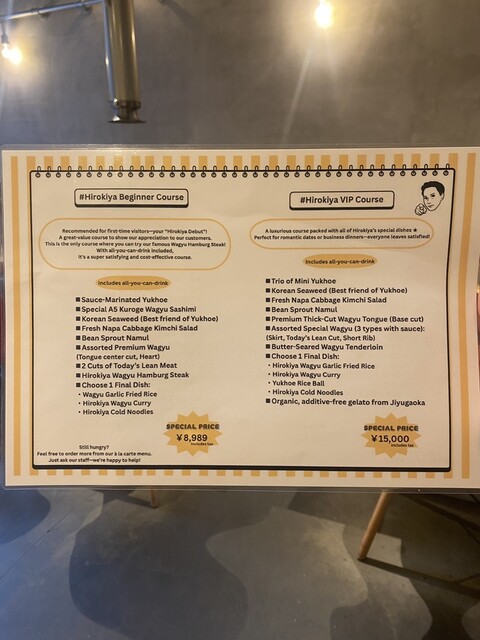 #Hirokiya Beginner Course
Recommended for first-time visitors—your "Hirokiya Debut"!
A great-value course to show our appreciation to our customers.
This is the only course where you can try our famous Wagyu Hamburg Steak!
With all-you-can-drink included,
it's a super satisfying and cost-effective course.
Includes all-you-can-drink
■ Sauce-Marinated Yukhoe
■ Special A5 Kuroge Wagyu Sashimi
■ Korean Seaweed (Best friend of Yukhoe)
■ Fresh Napa Cabbage Kimchi Salad
■ Bean Sprout Namul
■ Assorted Premium Wagyu
(Tongue center cut, Heart)
■ 2 Cuts of Today's Lean Meat
■ Hirokiya Wagyu Hamburg Steak
■ Choose 1 Final Dish:
・Wagyu Garlic Fried Rice
・Hirokiya Wagyu Curry
・Hirokiya Cold Noodles
SPECIAL PRICE
¥8,989
includes tax
Still hungry?
Feel free to order more from our à la carte menu.
Just ask our staff—we're happy to help!
#Hirokiya VIP Course
A luxurious course packed with all of Hirokiya's special dishes ★
Perfect for romantic dates or business dinners—everyone leaves satisfied!
Includes all-you-can-drink
■ Trio of Mini Yukhoe
■ Korean Seaweed (Best friend of Yukhoe)
■ Fresh Napa Cabbage Kimchi Salad
■ Bean Sprout Namul
■ Premium Thick-Cut Wagyu Tongue (Base cut)
■ Assorted Special Wagyu (3 types with sauce):
(Skirt, Today's Lean Cut, Short Rib)
■ Butter-Seared Wagyu Tenderloin
■ Choose 1 Final Dish:
・Hirokiya Wagyu Garlic Fried Rice
・Hirokiya Wagyu Curry
・Yukhoe Rice Ball
・Hirokiya Cold Noodles
■ Organic, additive-free gelato from Jiyugaoka
SPECIAL PRICE
¥15,000
includes tax